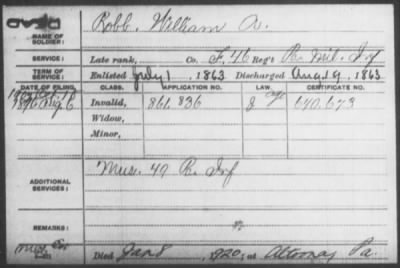 NAME OF SOLDIER: Robb, William A.
SERVICE: Late rank, Co. F, 46 Reg't Pa. Mil. Inf
TERM OF SERVICE: Enlisted July 1, 1863 Discharged Aug 19, 1863
DATE OF FILING. CLASS. APPLICATION NO. LAW. CERTIFICATE NO.
Invalid, 861.836 640.673
Widow,
Minor,
ADDITIONAL SERVICES: Mus. 49 Pa. Inf
REMARKS:
Died Jan 8, 1920, at Altoona, Pa.